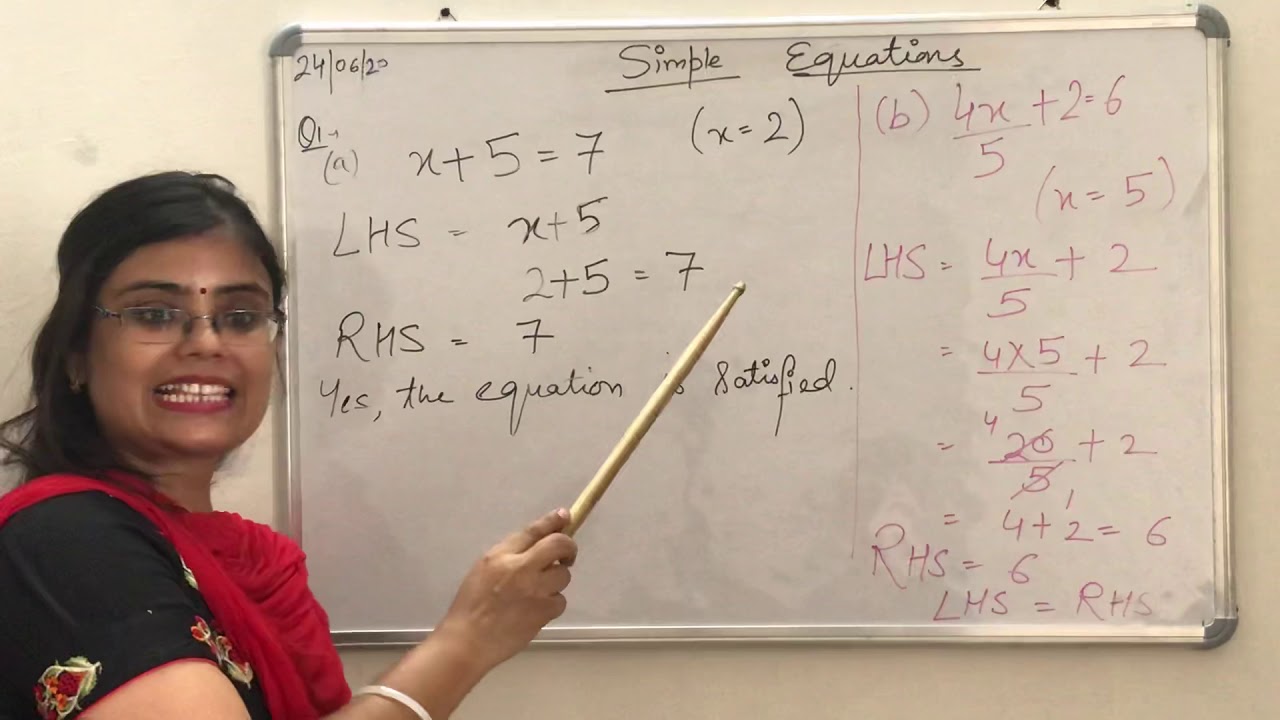 24/06/20
Simple Equations
Q1→
(a) x+5=7 (x=2)
LHS = x+5
2+5 = 7
RHS = 7
Yes, the equation is satisfied.
(b) 4x/5 +2=6
(x=5)
LHS = 4x/5 + 2
= 4×5/5 + 2
= 4 20/5 1 + 2
= 4+2 = 6
RHS = 6
LHS = RHS